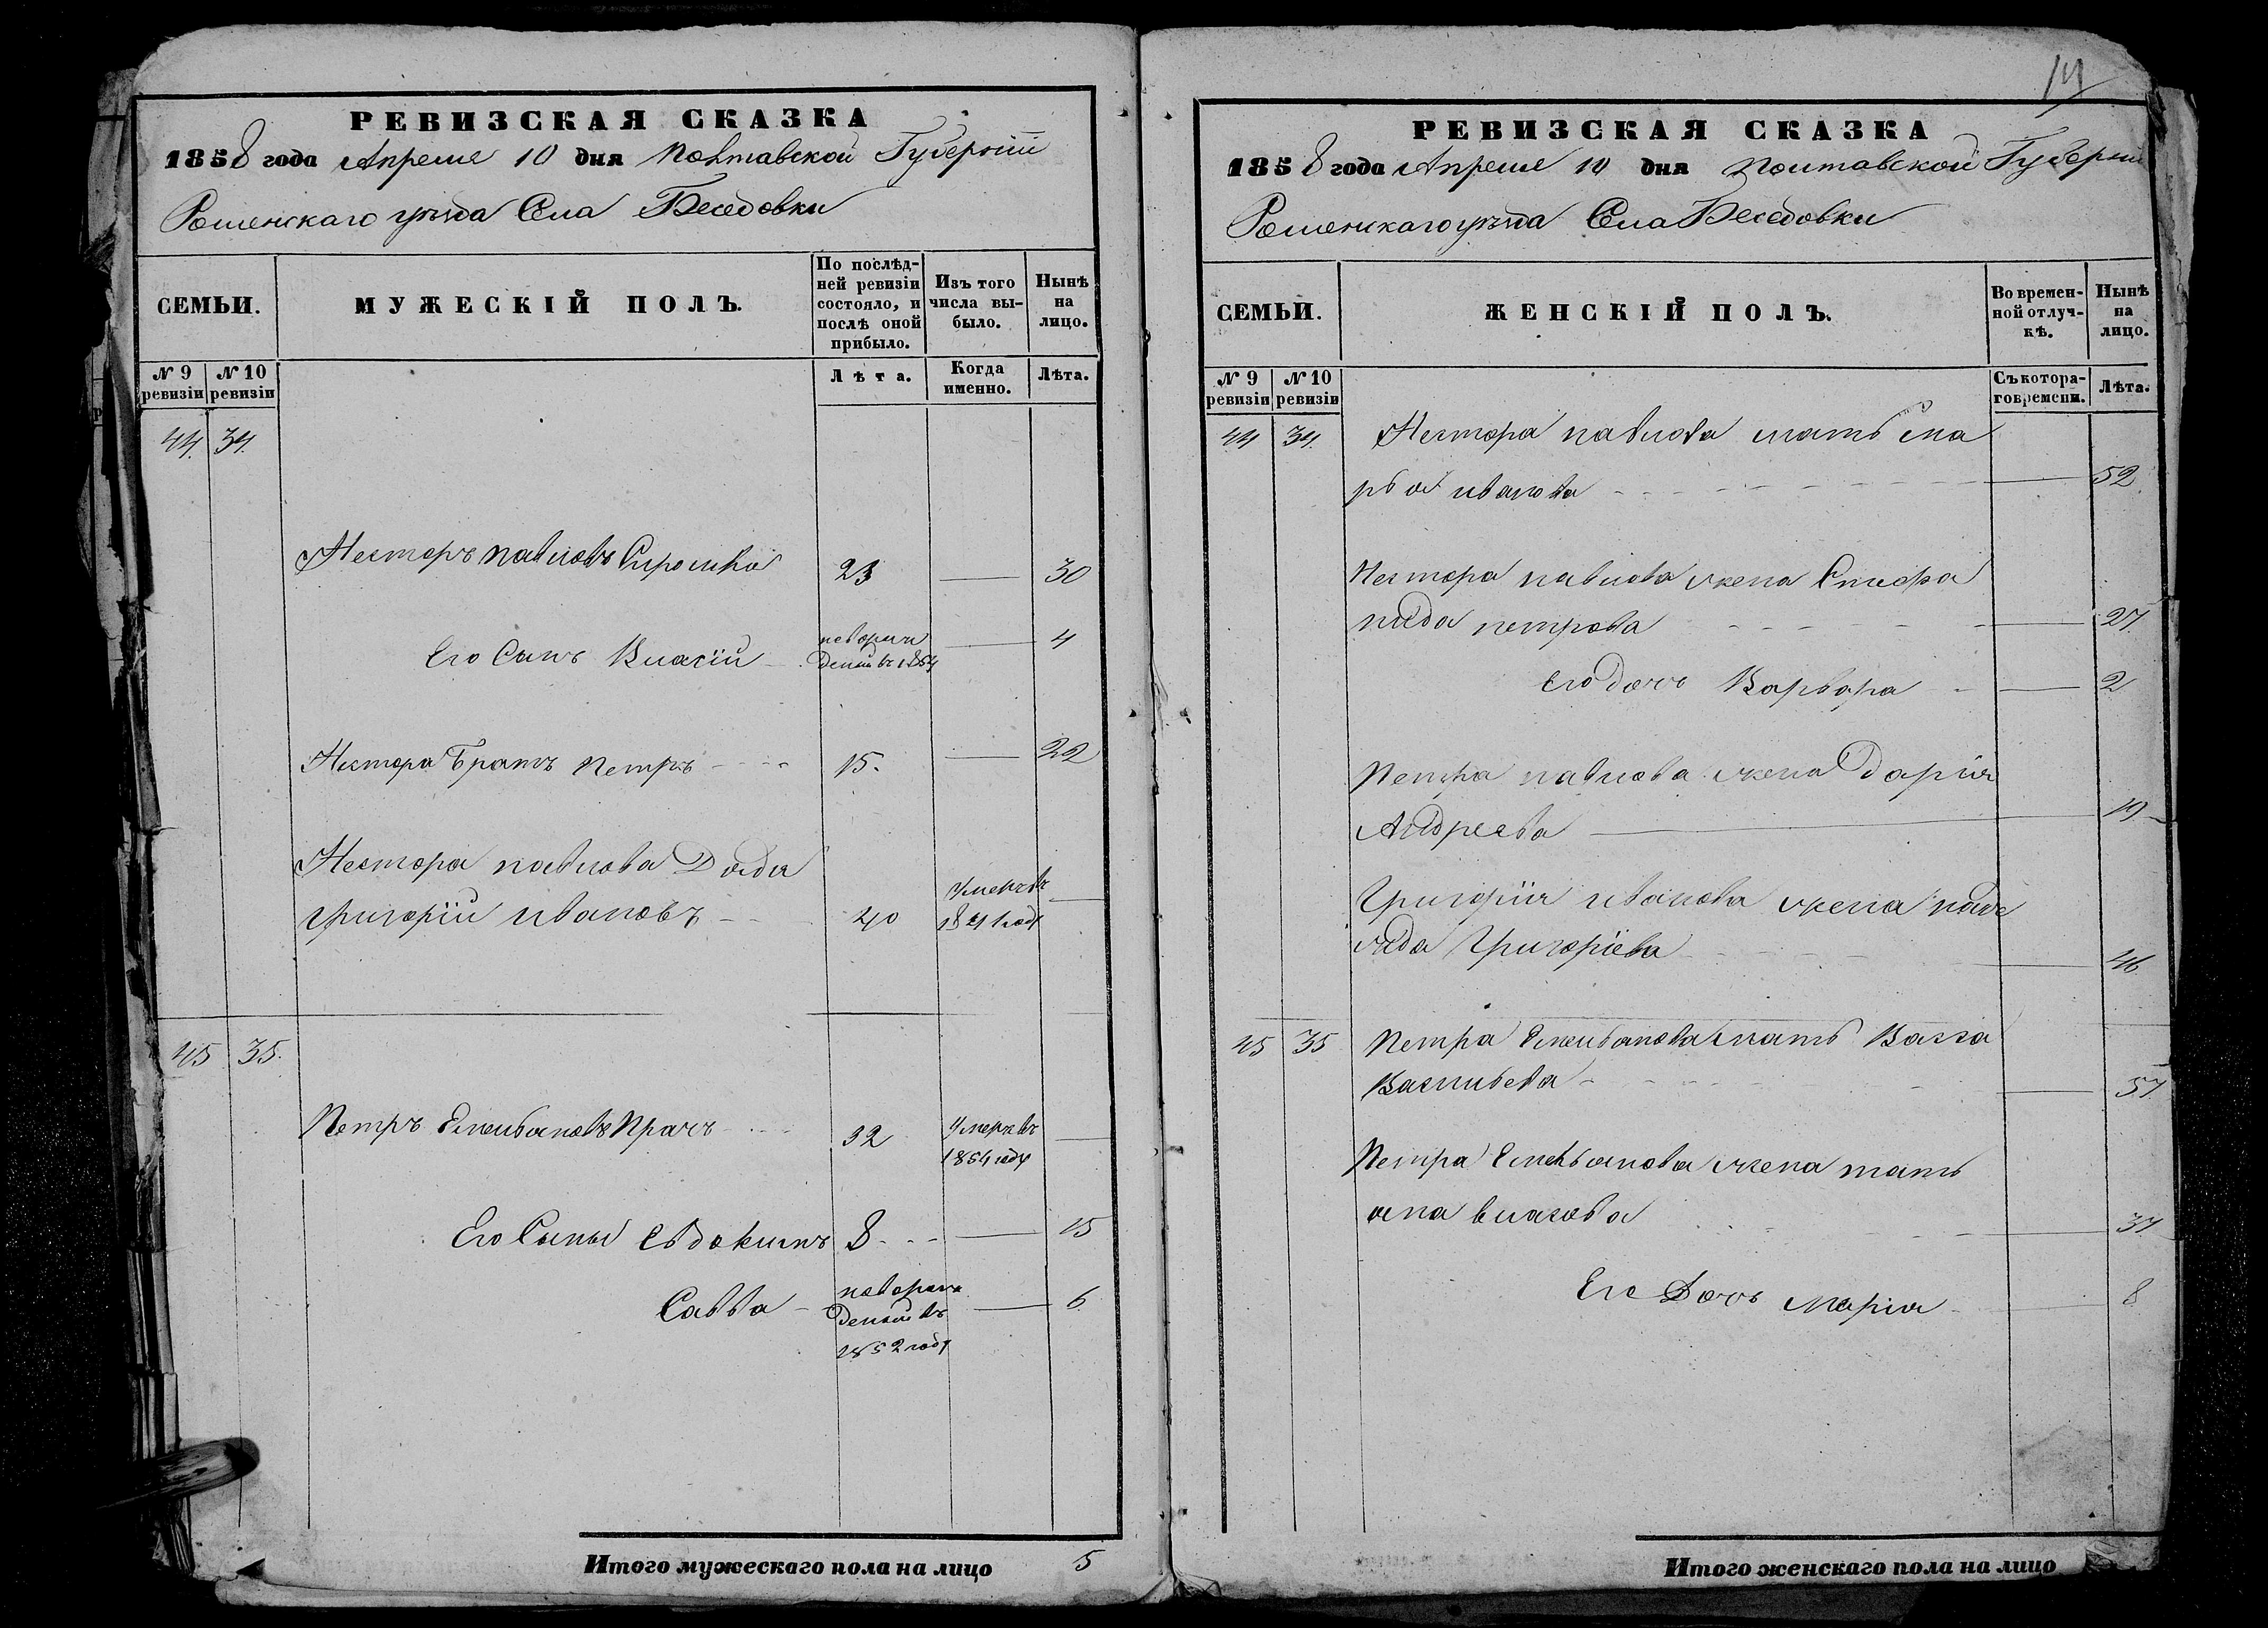 РЕВИЗСКАЯ СКАЗКА
1858 года Апреля 10 дня Полтавской Губерніи
Роменскаго уѣзда Села Беседовки
СЕМЬИ.
МУЖЕСКІЙ ПОЛЪ.
По послѣд-
ней ревизіи
состояло, и
послѣ оной
прибыло.
Изъ того
числа вы-
было.
Нынѣ
на
лицо.
№ 9
ревизіи
№ 10
ревизіи
Лѣта.
Когда
именно.
Лѣта.
44. 34.
Несторъ павловъ 23 — 30
Его Сынъ Власій новорож
денный въ 1854 — 4
Нестора Братъ Петръ 15. — 22
Нестора павлова Дядя
григорій ивановъ 40 Умеръ въ
году —
45 35.
Петръ Емельяновъ Прачъ 32 Умеръ въ
1854 году —
Его Сыны Евдокимъ 8 — 15
Савва новорож
денный въ
1852 году — 6
Итого мужескаго пола на лицо 5
14
РЕВИЗСКАЯ СКАЗКА
1858 года Апреля 10 дня Полтавской Губерніи
Роменскаго уѣзда Села Беседовки
СЕМЬИ.
ЖЕНСКІЙ ПОЛЪ.
Во времен-
ной отлуч-
кѣ.
Нынѣ
на
лицо.
№ 9
ревизіи
№ 10
ревизіи
Съ котора-
го времени.
Лѣта.
44 34. Нестора павлова мать ма
рья иванова — 52
Нестора павлова жена Степа
нида петрова — 27.
его дочь Варвара — 2
Петра павлова жена Дарія
Андреева — 19
Григорія иванова жена
Григоріева — 46
45 35 Петра Емельянова мать Васса
Васильева — 57
Петра Емельянова жена тать
яна власова — 37
Его Дочь Марія — 8
Итого женскаго пола на лицо